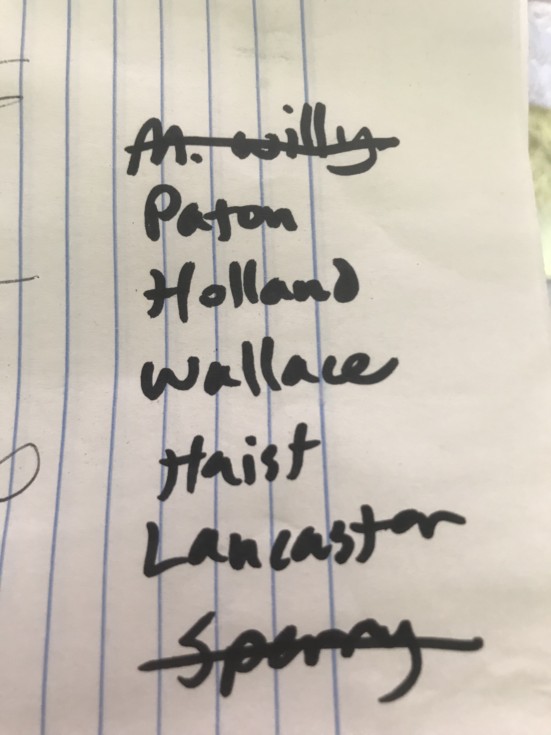 M. Willy
Paton
Holland
Wallace
Haist
Lancaster
Sperry